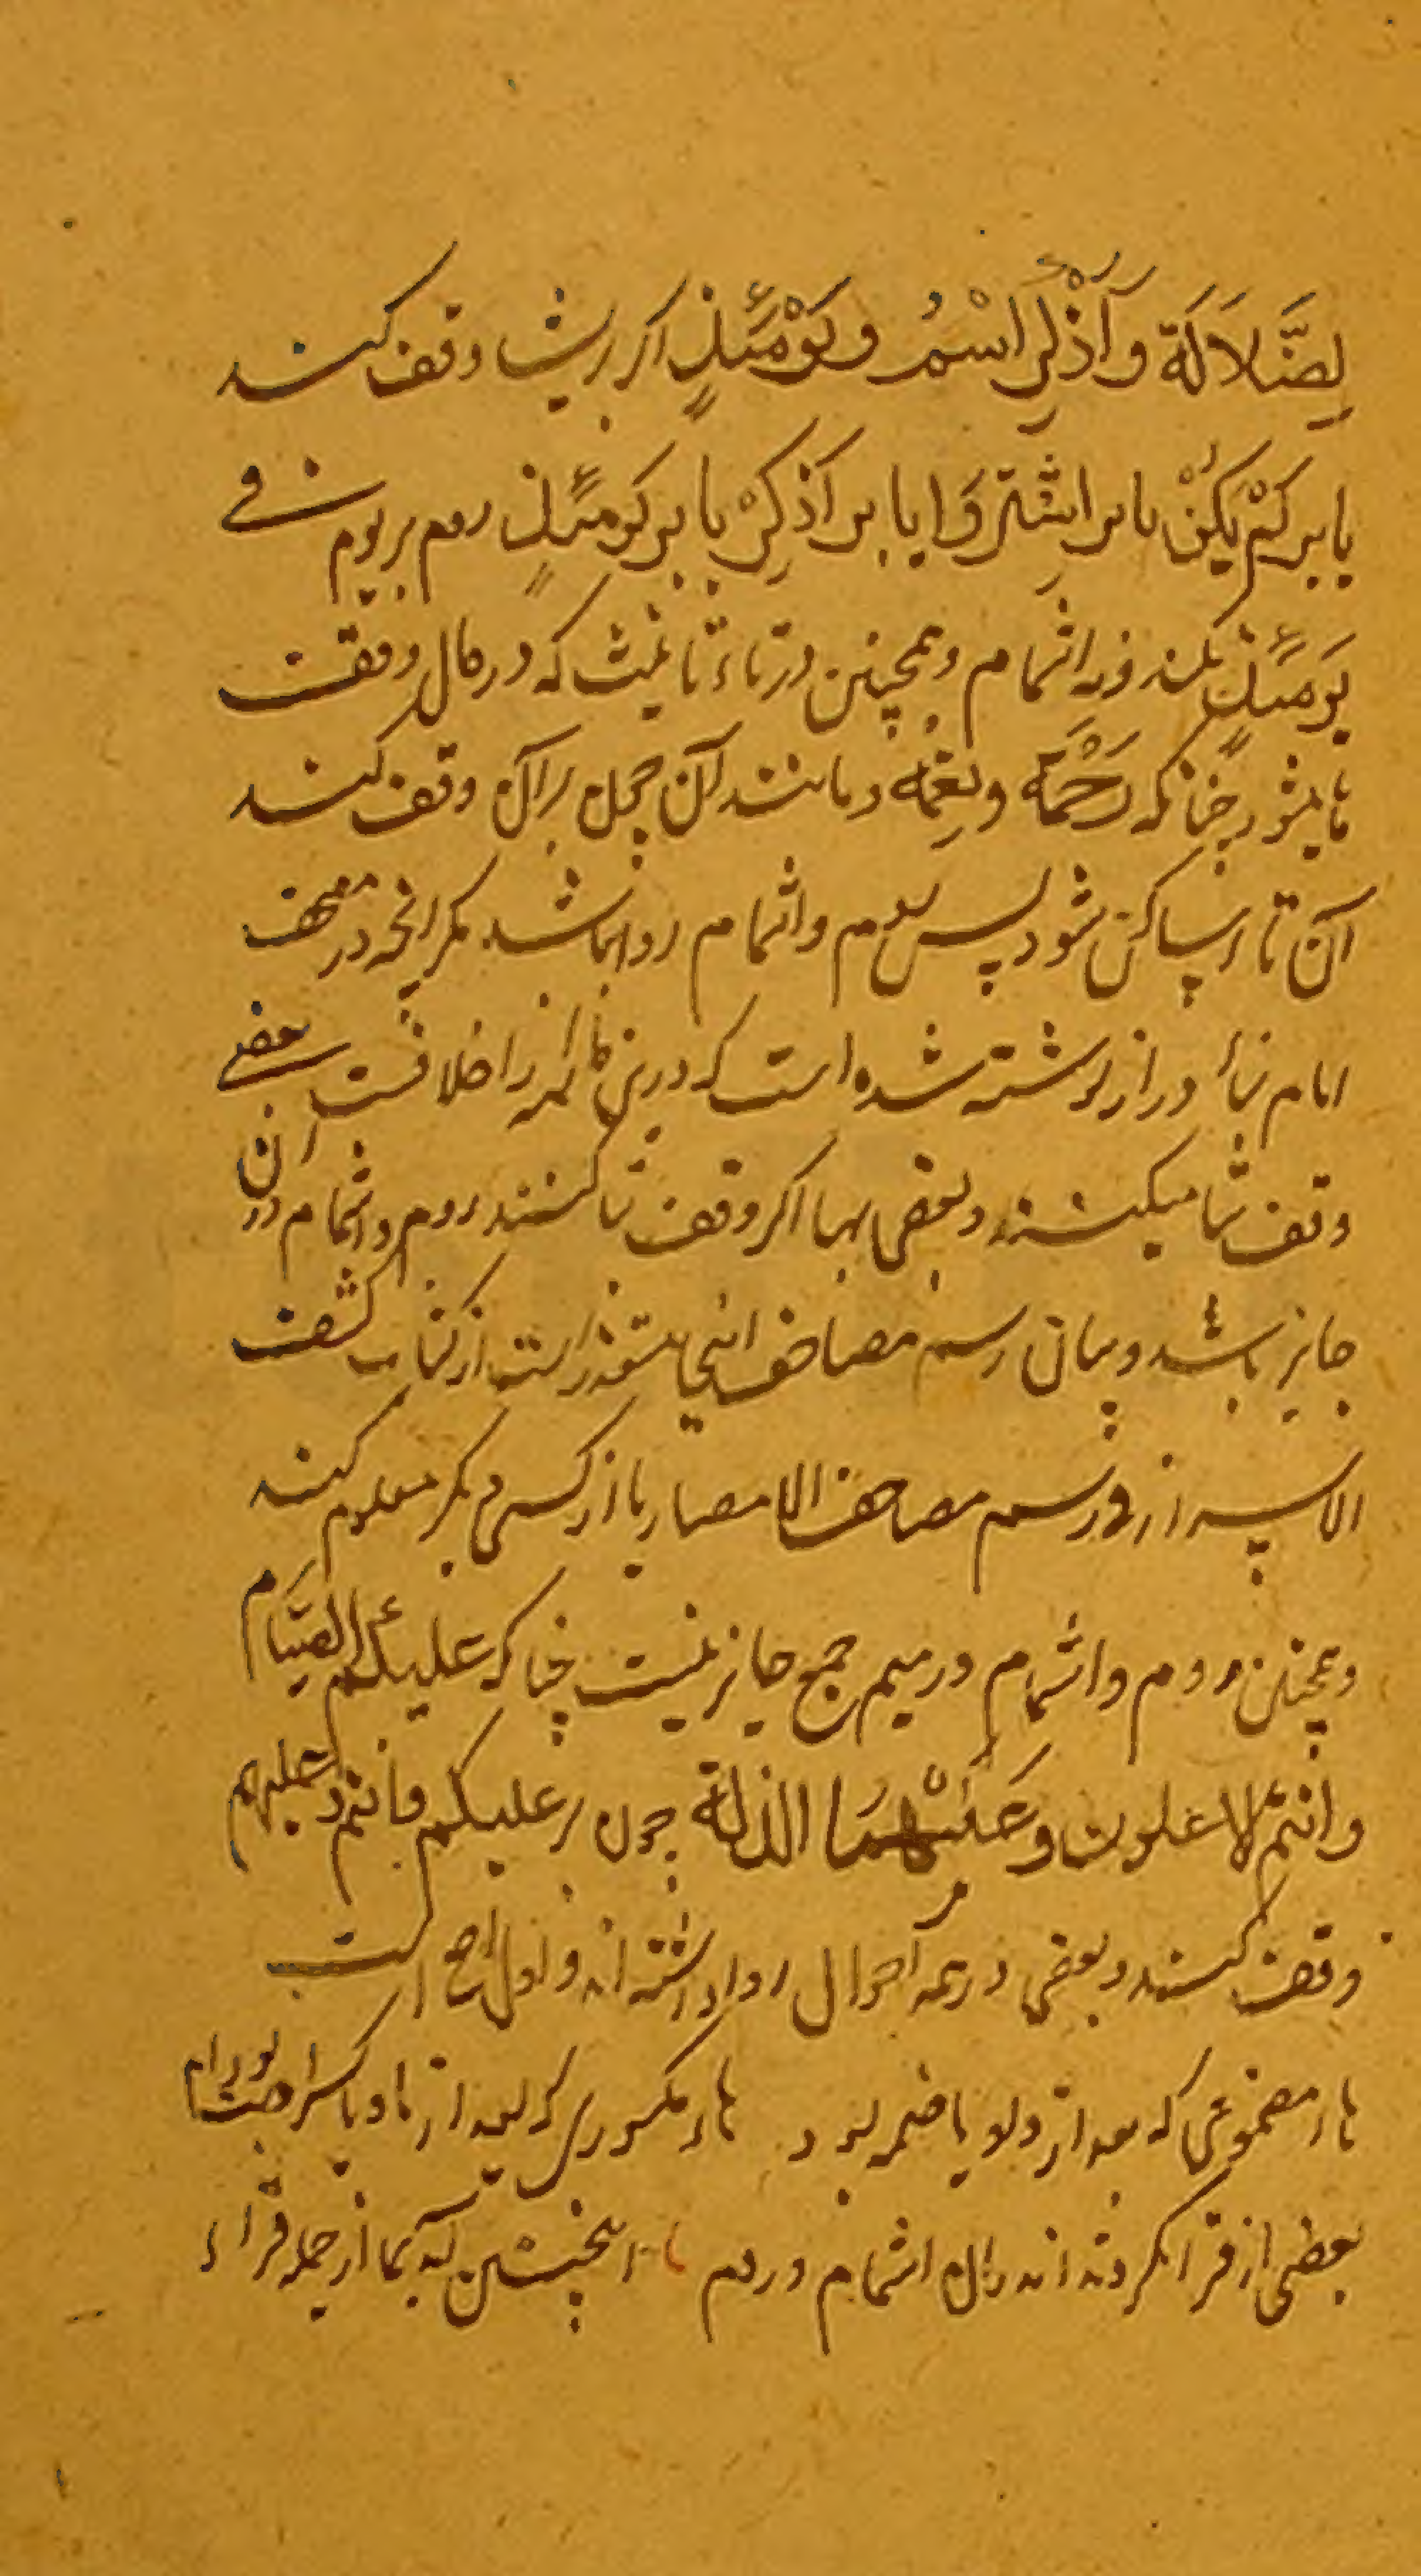 لِضَّلاَلَة وَاَذْكِرِ اسْمُ و يَوْمَئِذٍ اگر برش وقف کنند
یا بر لَمْ یَکُنْ یا بر اشْتَرَوَا یا بر اَذْكِرْ یا بر یَومَئِذٍ روم بر یوم فی
یَومَئِذٍ نکند و نه اشمام و همچنین در تاء تانیث که در حال وقف
ها میشود چنانکه رَحْمَة و نِعْمَه و مانند آن چون بر آن وقف کنند
آن تا را ساکن شود پس روم و اشمام روا نباشد مگر انچه در مصحف
امام بتاء دراز نوشته شده است که درین تا ائمه را خلافست بعضی
وقف بتا میکنند و بعضی بها اگر وقف بتا کنند روم و اشمام در آن
جایز باشد و بیان رسم مصاحف اینجا متعذر است از کتاب کشف
الاسرار فی رسم مصاحف الامصار یا از کسی دیگر معلوم کنند
و همچنین روم و اشمام در میم جمع جایز نیست چنانکه عَلَیکُمُ الصِّیَام
و انتم الاعلون و عَلَیْهِمَا الذلة چون بر علیکم و انتم و علیهم
وقف کنند و بعضی در همه احوال روا داشته اند و اول اصح است
هاء مضمومی که بعد از واو یا ضمه بود هاء مکسوری که بعد از یا و یا کسره بود
بعضی از قرا نکرده اند در آن اشمام و روم اینچنین که بها از جمله قراء